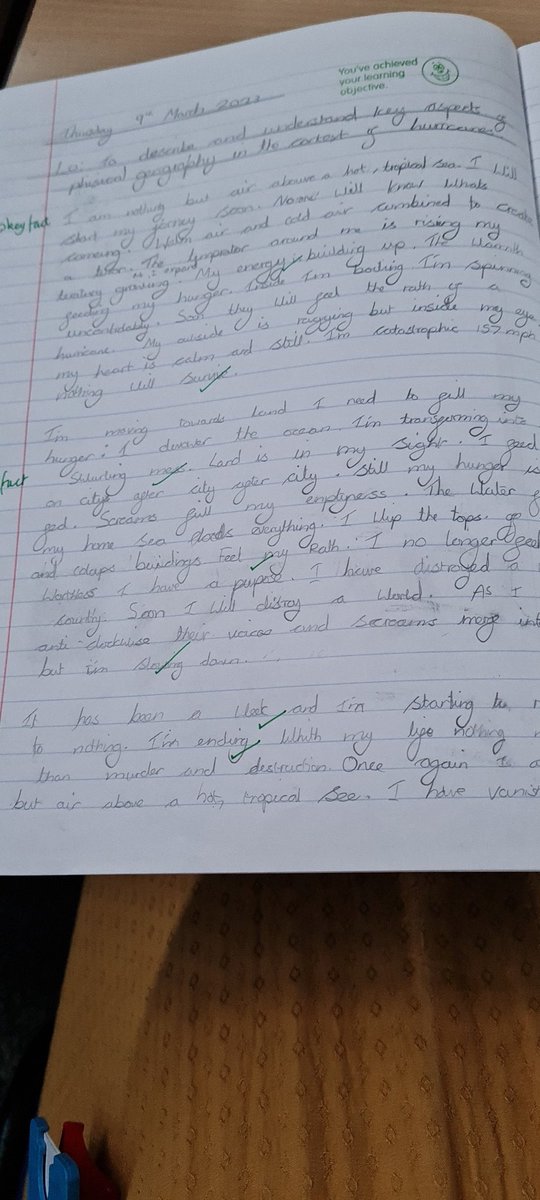 You've achieved
your learning
objective.
Thursday 9th March 2023
Lo: To describe and understand key aspects of
physical geography in the context of hurricanes.
key fact
I am nothing but air above a hot, tropical sea. I Will
start my jorney soon. Noone Will know Whats
comeing. Warm air and cold air combined to create
a The around me is rising my
growing. as I expand My energy building up. The Warmth
feeding my hunger. Inside I'm boiling I'm spinning
Soon they Will feel the rath of a
hurricane. My outside is raggying but inside my eye
my heart is calm and still. I'm catastrophic 157 mph
nothing Will Survive.
I'm moving towards Land I need to fill my
hunger. I devover the ocean. I'm transforming into
mass. Land is in my Sight. I feed
fact
on citys after city after city. Still my hunger is
fed. Screams full my emptyness. The Water
my home sea floods everything. I Wip the tops of
and colaps buildings. Feel my Rath. I no longer feel
Worthless I have a pupose. I have distroyed a
country. Soon I Will distroy a World. As I
anti clockwise their voices and screams merge
but i'm Slowing down.
It has been a Week and I'm starting to
to nothing. I'm ending Whith my life nothing
than murder and destruction. Once again
but air above a hot, tropical see. I have